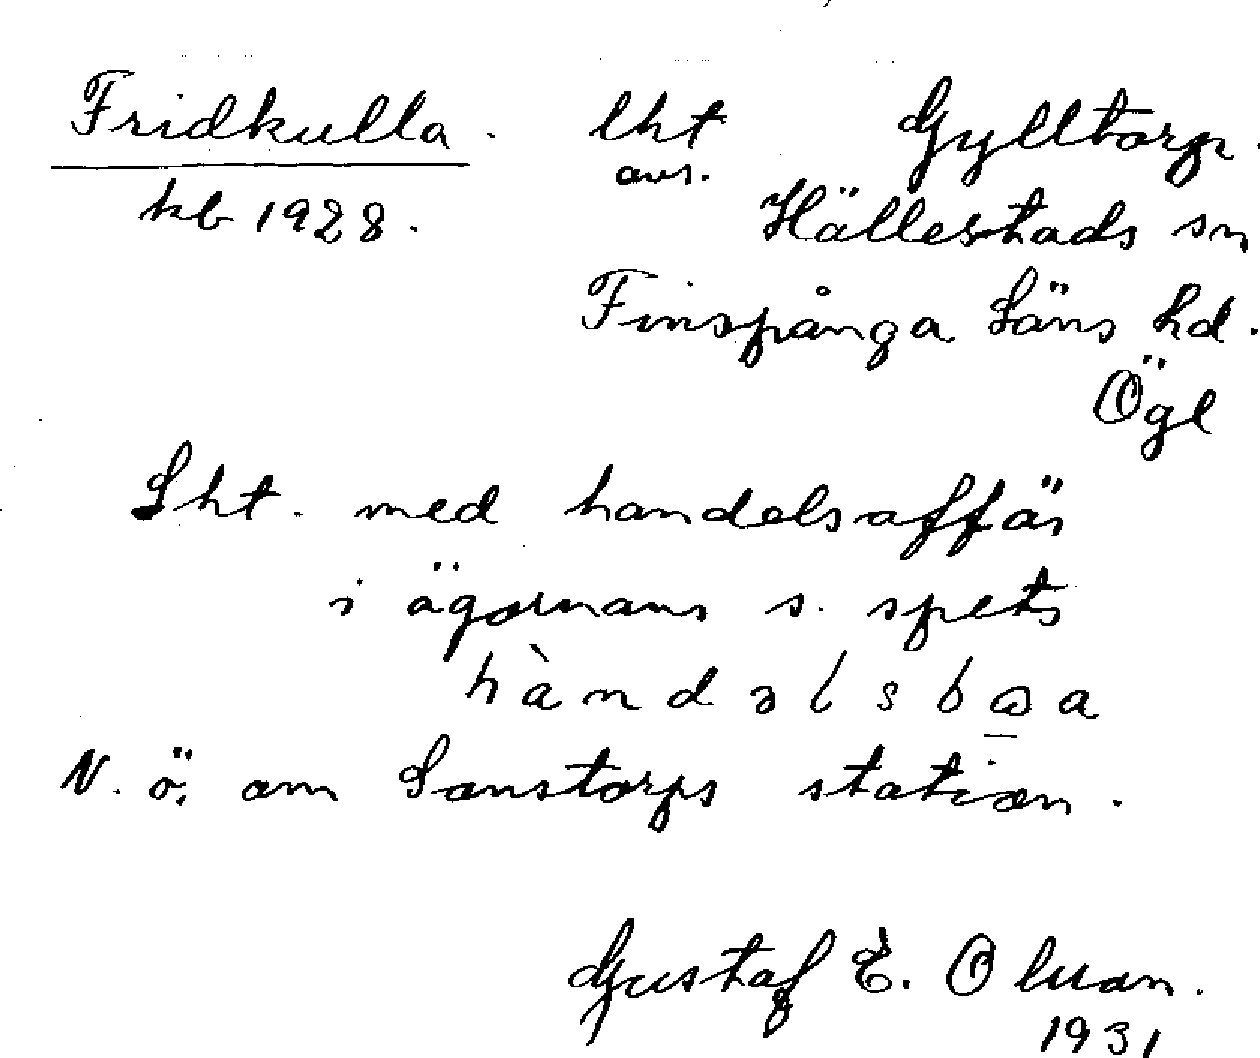 Fridkulla. lht Gylltorp.
avs.
kb 1928. Hällestads sn
Finspånga Läns hd.
Ögl
Lht. med handelsaffär
i ägornans s. spets
hàndəlsbωa
N. ö. om Sonstorps station.
Gustaf E. Olsson.
1931